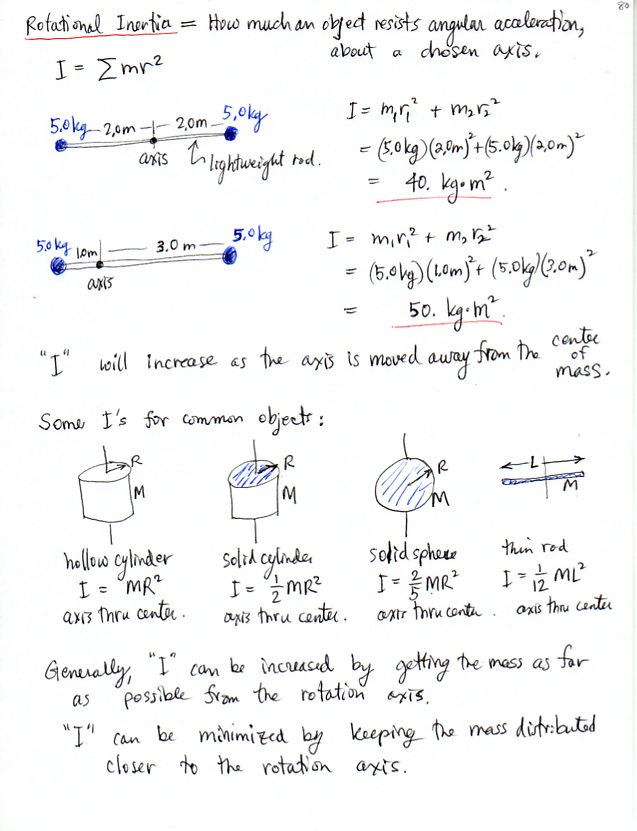 80
Rotational Inertia = How much an object resists angular acceleration,
about a chosen axis.
I = Σmr²
5.0kg 2.0m 2.0m 5.0kg
axis lightweight rod.
I = m₁r₁² + m₂r₂²
= (5.0kg)(2.0m)²+(5.0kg)(2.0m)²
= 40. kg·m².
5.0kg 1.0m 3.0 m 5.0kg
axis
I = m₁r₁² + m₂r₂²
= (5.0kg)(1.0m)²+ (5.0kg)(3.0m)²
= 50. kg·m².
"I" will increase as the axis is moved away from the center
of
mass.
Some I's for common objects:
R M
hollow cylinder
I = MR²
axis thru center.
R M
solid cylinder
I = ½MR²
axis thru center.
R M
solid sphere
I = 2/5 MR²
axis thru center.
L M
thin rod
I = 1/12 ML²
axis thru center
Generally, "I" can be increased by getting the mass as far
as possible from the rotation axis.
"I" can be minimized by keeping the mass distributed
closer to the rotation axis.